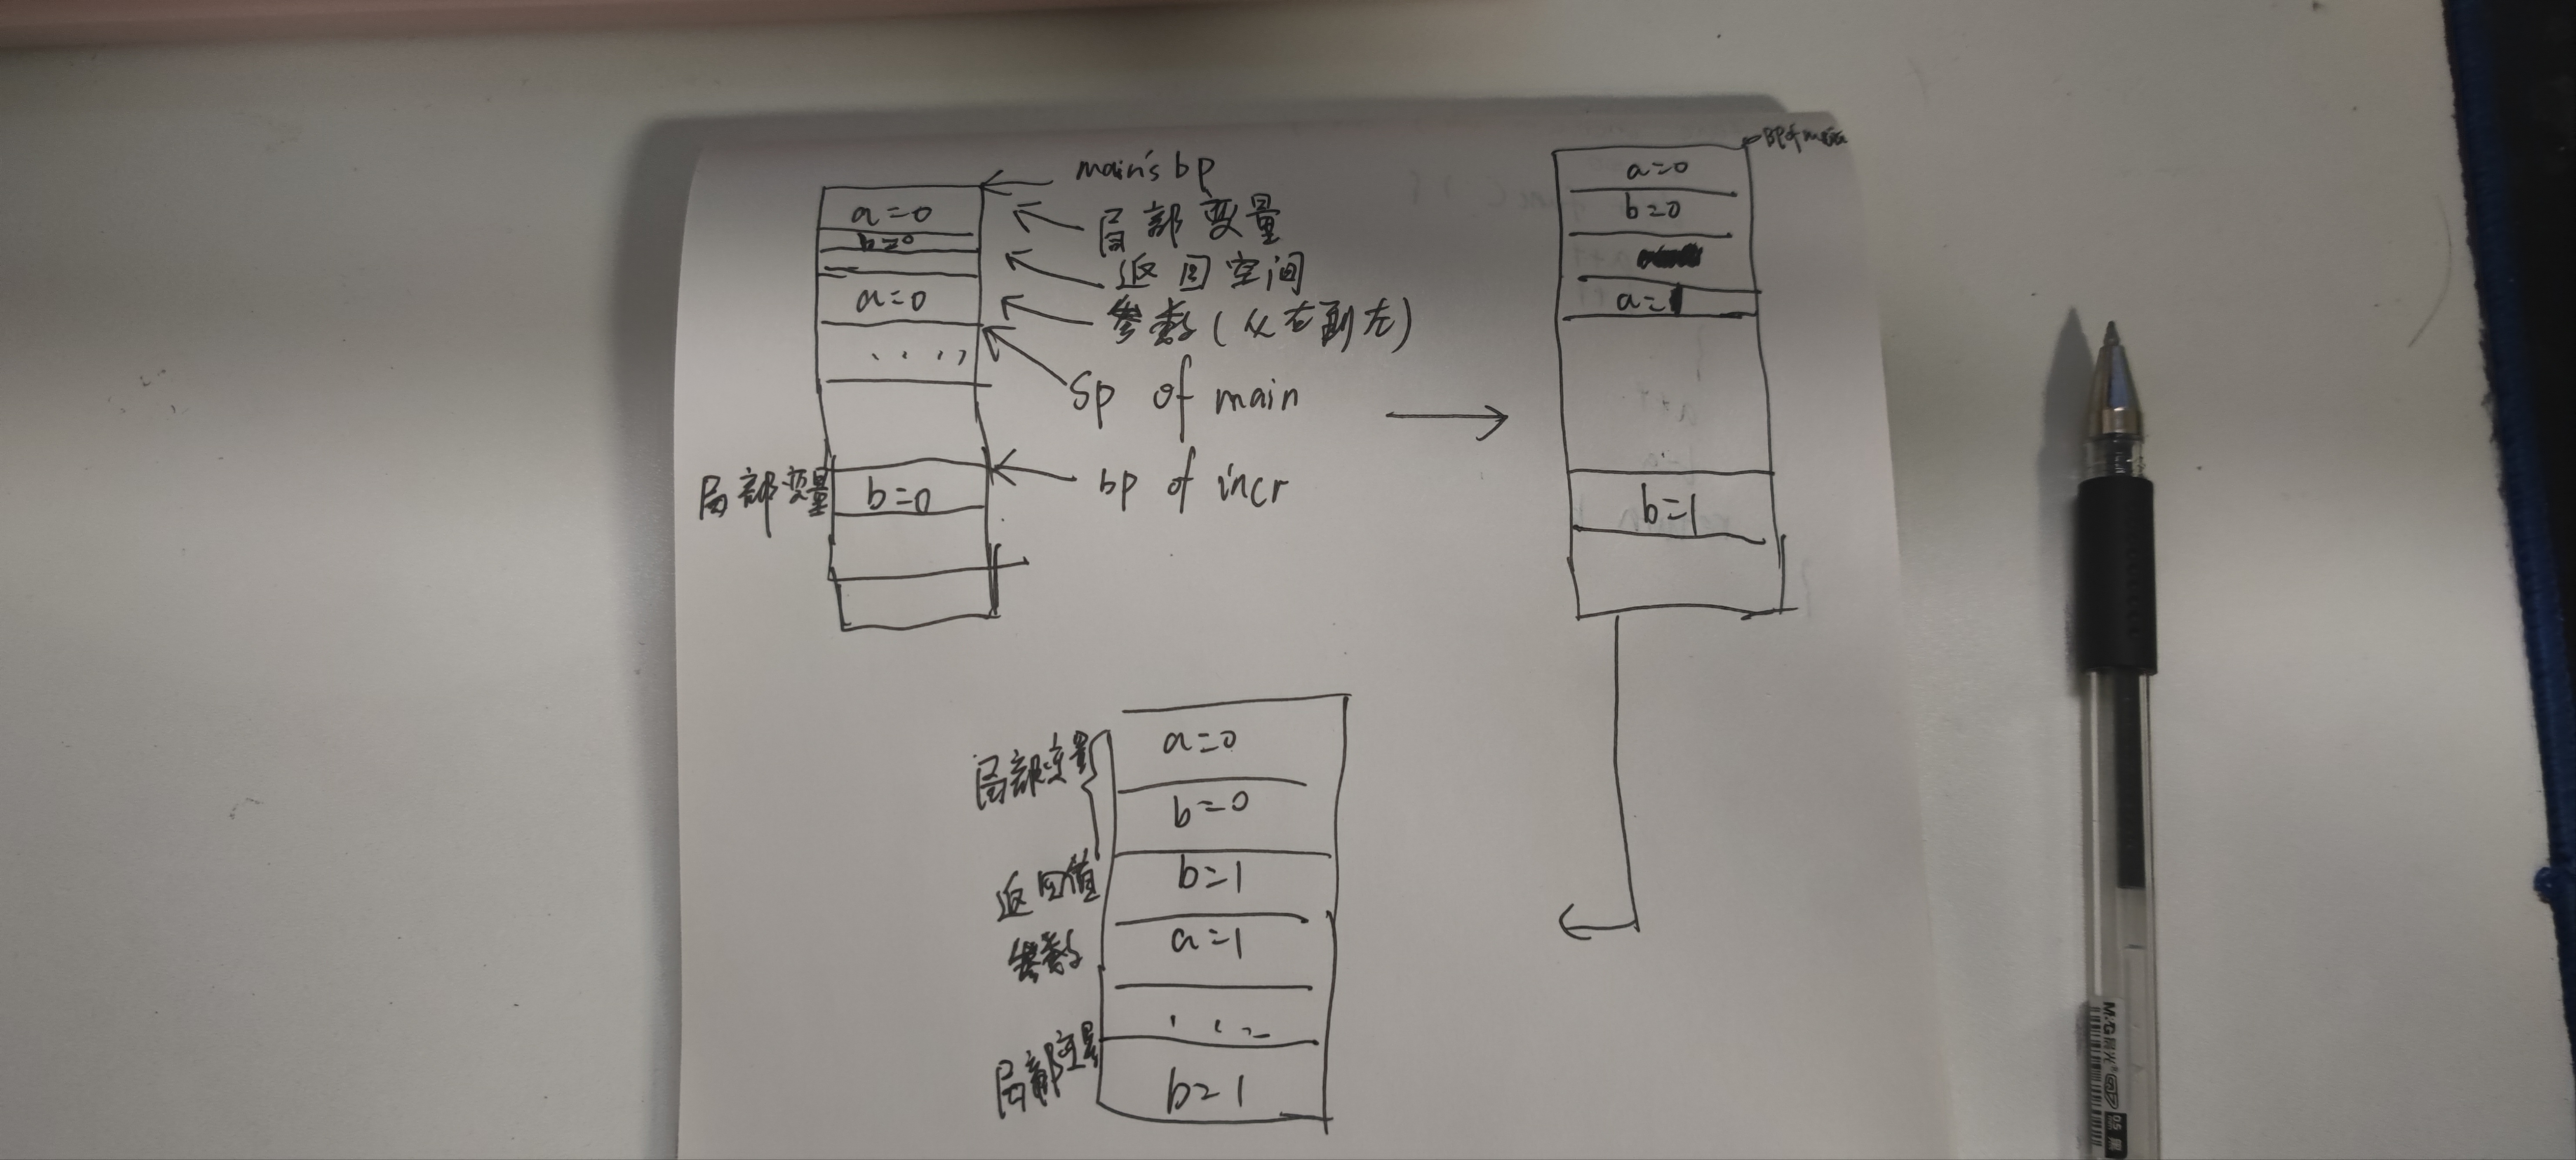 main's bp
a=0
局部变量
b=0
返回空间
a=0
参数(从右到左)
....
Sp of main
bp of incr
局部变量
b=0
BP of main
a=0
b=0
a=1
b=1
局部变量
a=0
b=0
返回值
b=1
参数
a=1
...
局部变量
b=1
M&G 晨光
0.5 黑